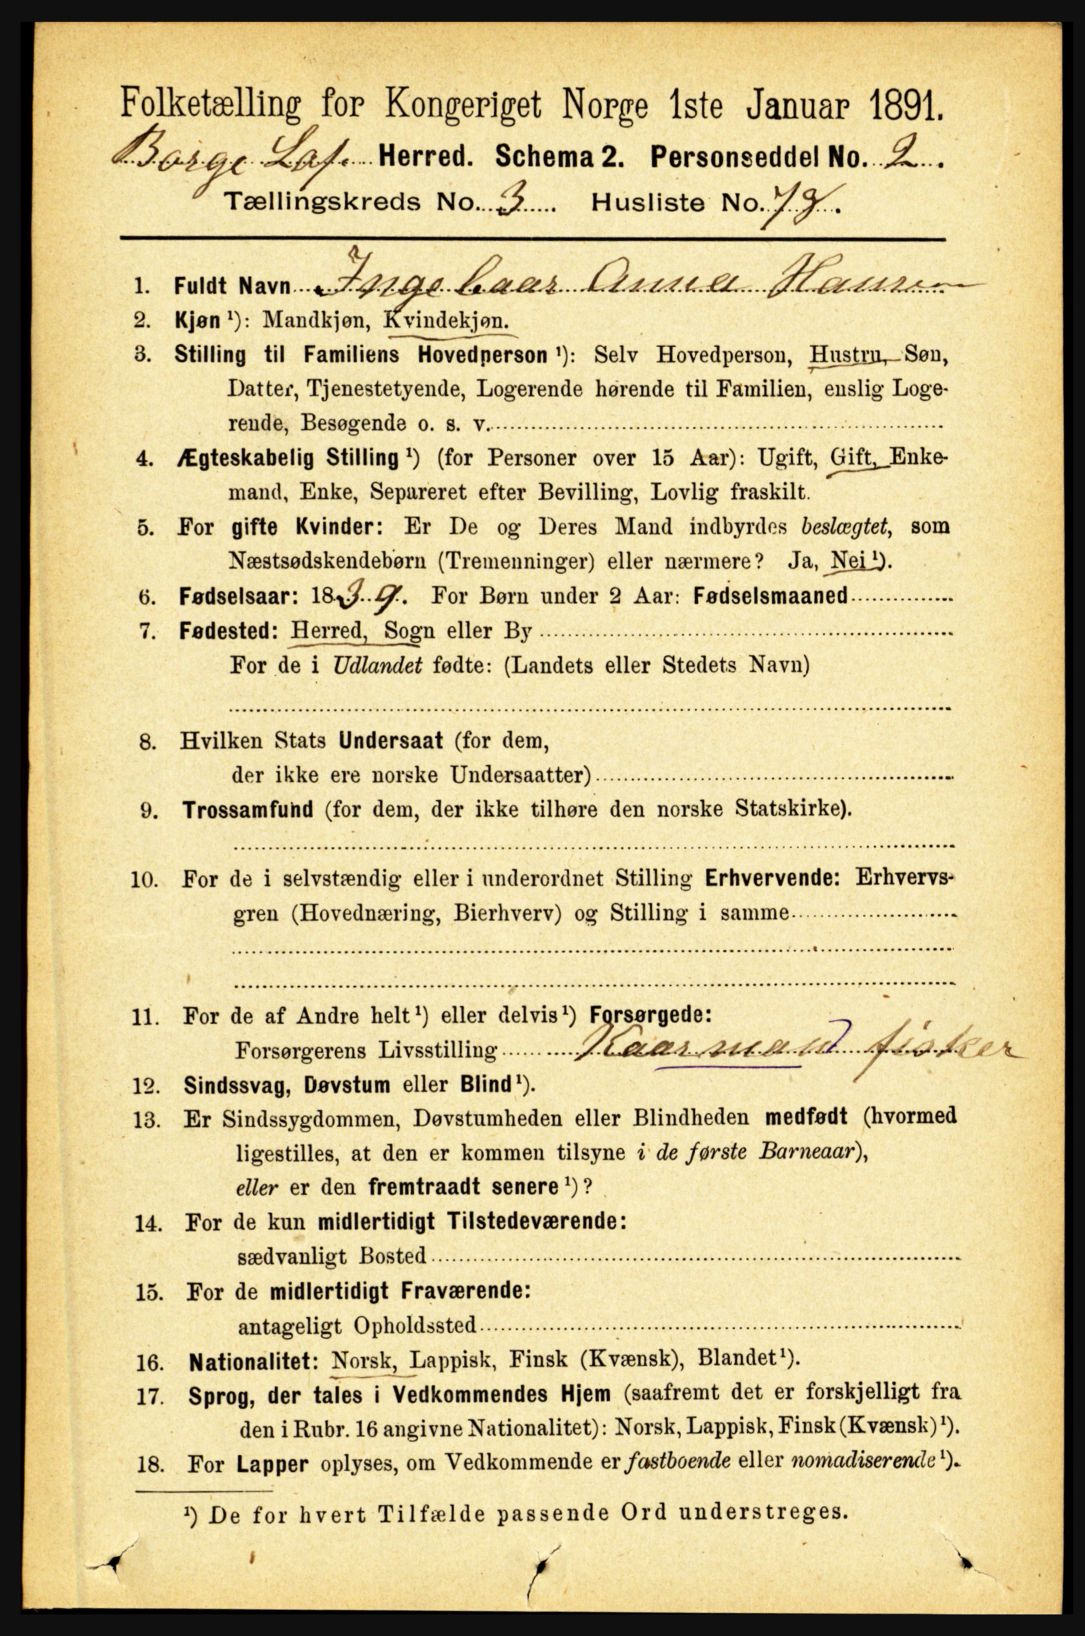 Folketælling for Kongeriget Norge 1ste Januar 1891.
Borge Lof. Herred. Schema 2. Personseddel No. 2.
Tællingskreds No. 3. Husliste No. 78.
1. Fuldt Navn Ingebaar Anna Hansen
2. Kjøn ¹): Mandkjøn, Kvindekjøn.
3. Stilling til Familiens Hovedperson ¹): Selv Hovedperson, Hustru, Søn,
Datter, Tjenestetyende, Logerende hørende til Familien, enslig Loge-
rende, Besøgende o. s. v.
4. Ægteskabelig Stilling ¹) (for Personer over 15 Aar): Ugift, Gift, Enke-
mand, Enke, Separeret efter Bevilling, Lovlig fraskilt.
5. For gifte Kvinder: Er De og Deres Mand indbyrdes beslægtet, som
Næstsødskendebørn (Tremenninger) eller nærmere? Ja, Nei ¹).
6. Fødselsaar: 1839. For Børn under 2 Aar: Fødselsmaaned
7. Fødested: Herred, Sogn eller By
For de i Udlandet fødte: (Landets eller Stedets Navn)
8. Hvilken Stats Undersaat (for dem,
der ikke ere norske Undersaatter)
9. Trossamfund (for dem, der ikke tilhøre den norske Statskirke).
10. For de i selvstændig eller i underordnet Stilling Erhvervende: Erhvervs-
gren (Hovednæring, Bierhverv) og Stilling i samme
11. For de af Andre helt ¹) eller delvis ¹) Forsørgede:
Forsørgerens Livsstilling Kaarmand fisker
12. Sindssvag, Døvstum eller Blind ¹).
13. Er Sindssygdommen, Døvstumheden eller Blindheden medfødt (hvormed
ligestilles, at den er kommen tilsyne i de første Barneaar),
eller er den fremtraadt senere ¹)?
14. For de kun midlertidigt Tilstedeværende:
sædvanligt Bosted
15. For de midlertidigt Fraværende:
antageligt Opholdssted
16. Nationalitet: Norsk, Lappisk, Finsk (Kvænsk), Blandet ¹).
17. Sprog, der tales i Vedkommendes Hjem (saafremt det er forskjelligt fra
den i Rubr. 16 angivne Nationalitet): Norsk, Lappisk, Finsk (Kvænsk) ¹).
18. For Lapper oplyses, om Vedkommende er fastboende eller nomadiserende ¹).
¹) De for hvert Tilfælde passende Ord understreges.